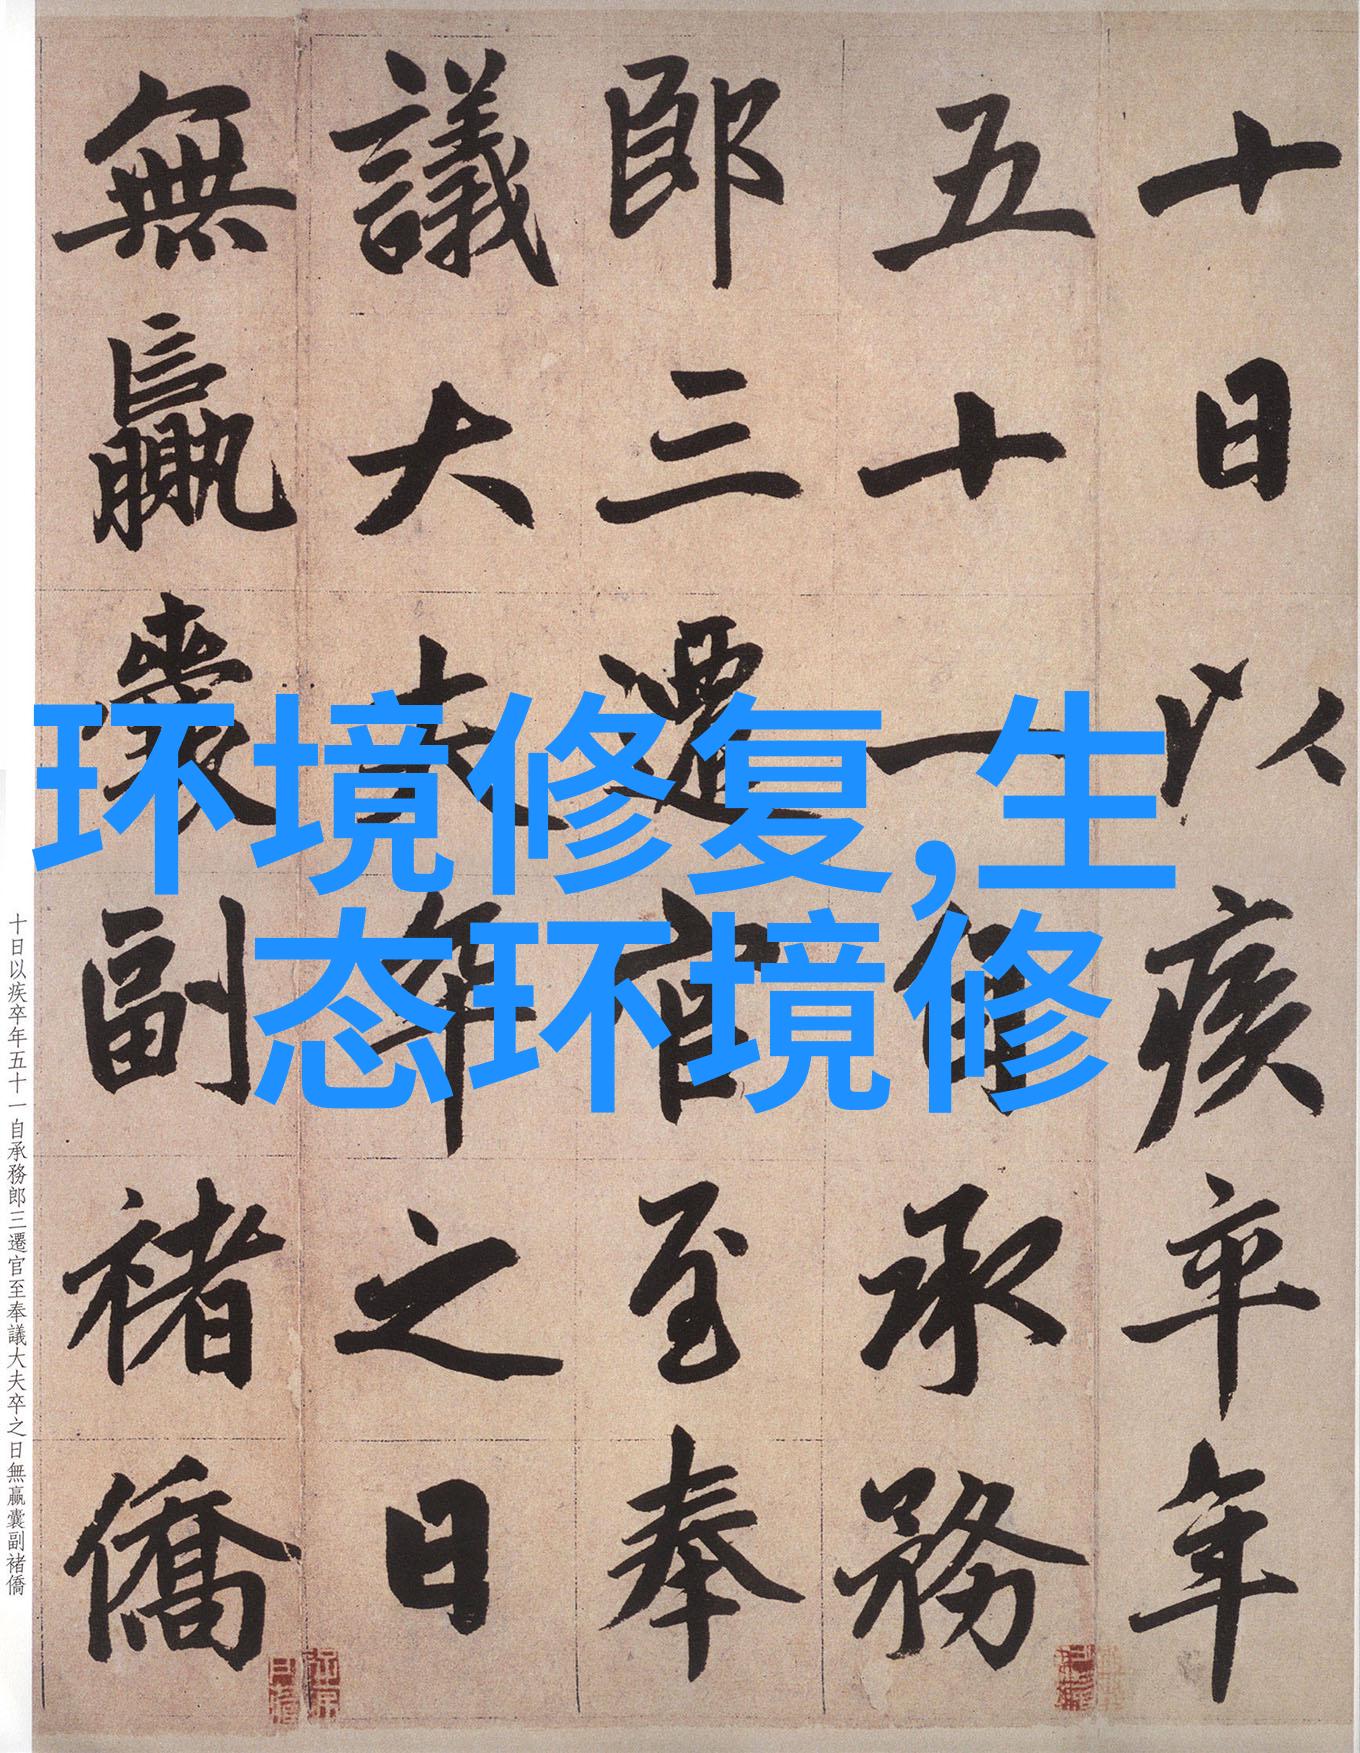 十日以疾卒年
五十一自承務
郎三遷官至奉
議大夫卒之日
無贏囊副褚僑
环境修复,生
态环境修
十日以疾卒年五十一自承務郎三遷官至奉議大夫卒之日無贏囊副褚僑